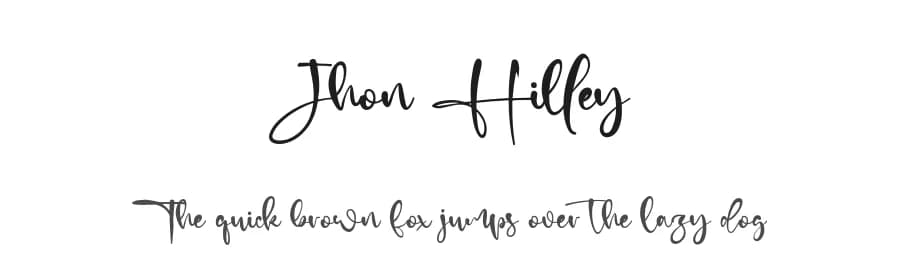 Jhon Hilley
The quick brown fox jumps over the lazy dog